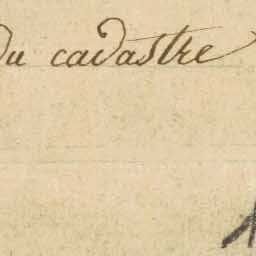 du cadastre